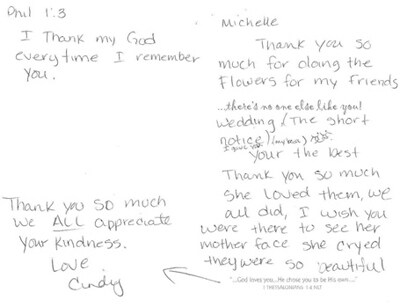 Phil 1:3
I Thank my God
everytime I remember
you.
Thank you so much
we ALL appreciate
your kindness.
Love
Cindy
Michelle
Thank you so
much for doing the
Flowers for my friends
...there's no one else like you!
Wedding (The short
notice) (my bad)
Your the best
Thank you so much
she loved them, we
all did, I wish you
were there to see her
mother face she cryed
they were so beautiful
"...God loves you...He chose you to be His own..."
1 THESSALONIANS 1:4 NLT